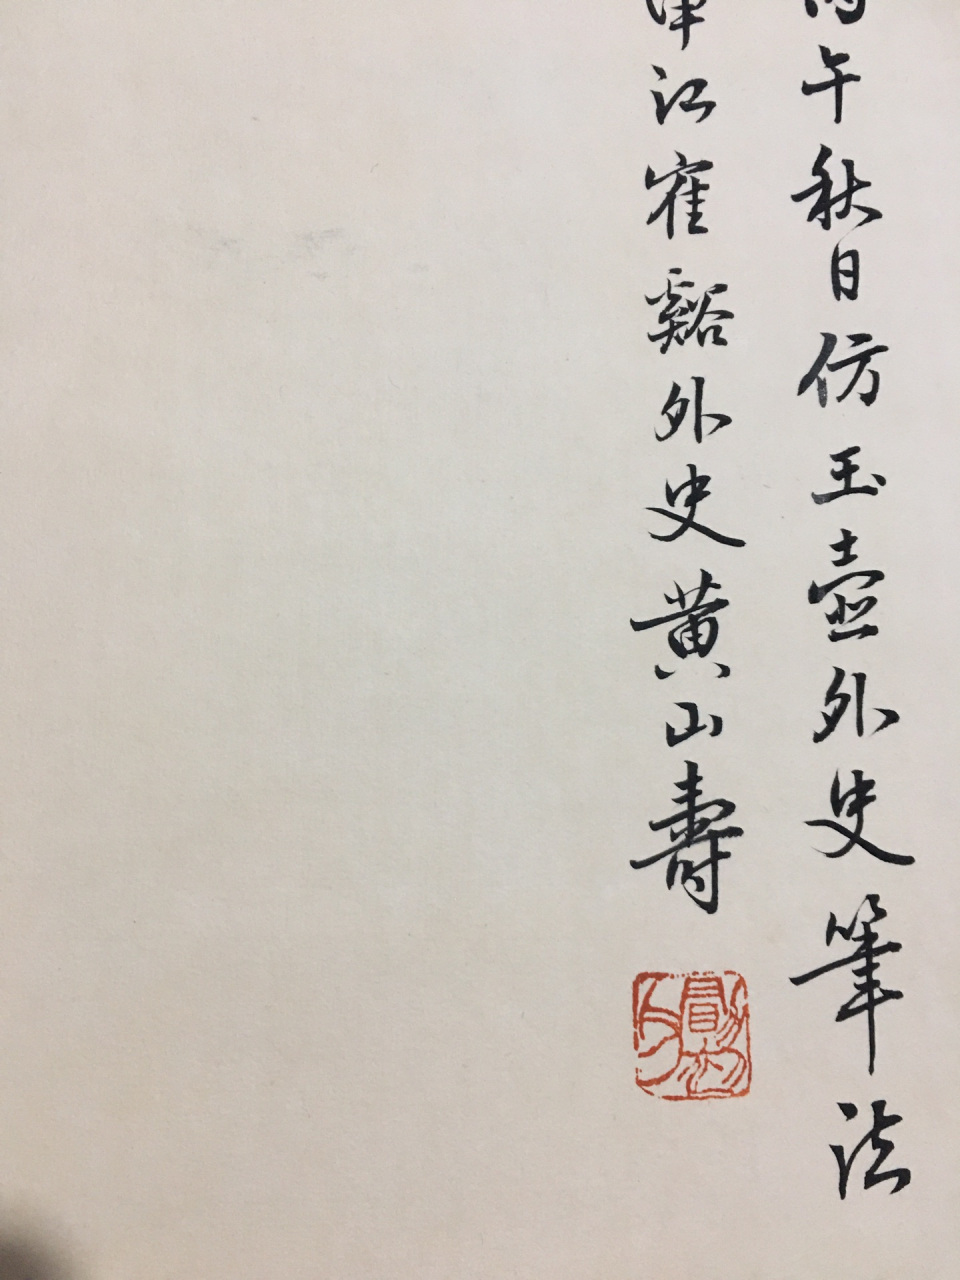 丙午秋日仿玉壺外史筆法
津江寉谿外史黄山壽